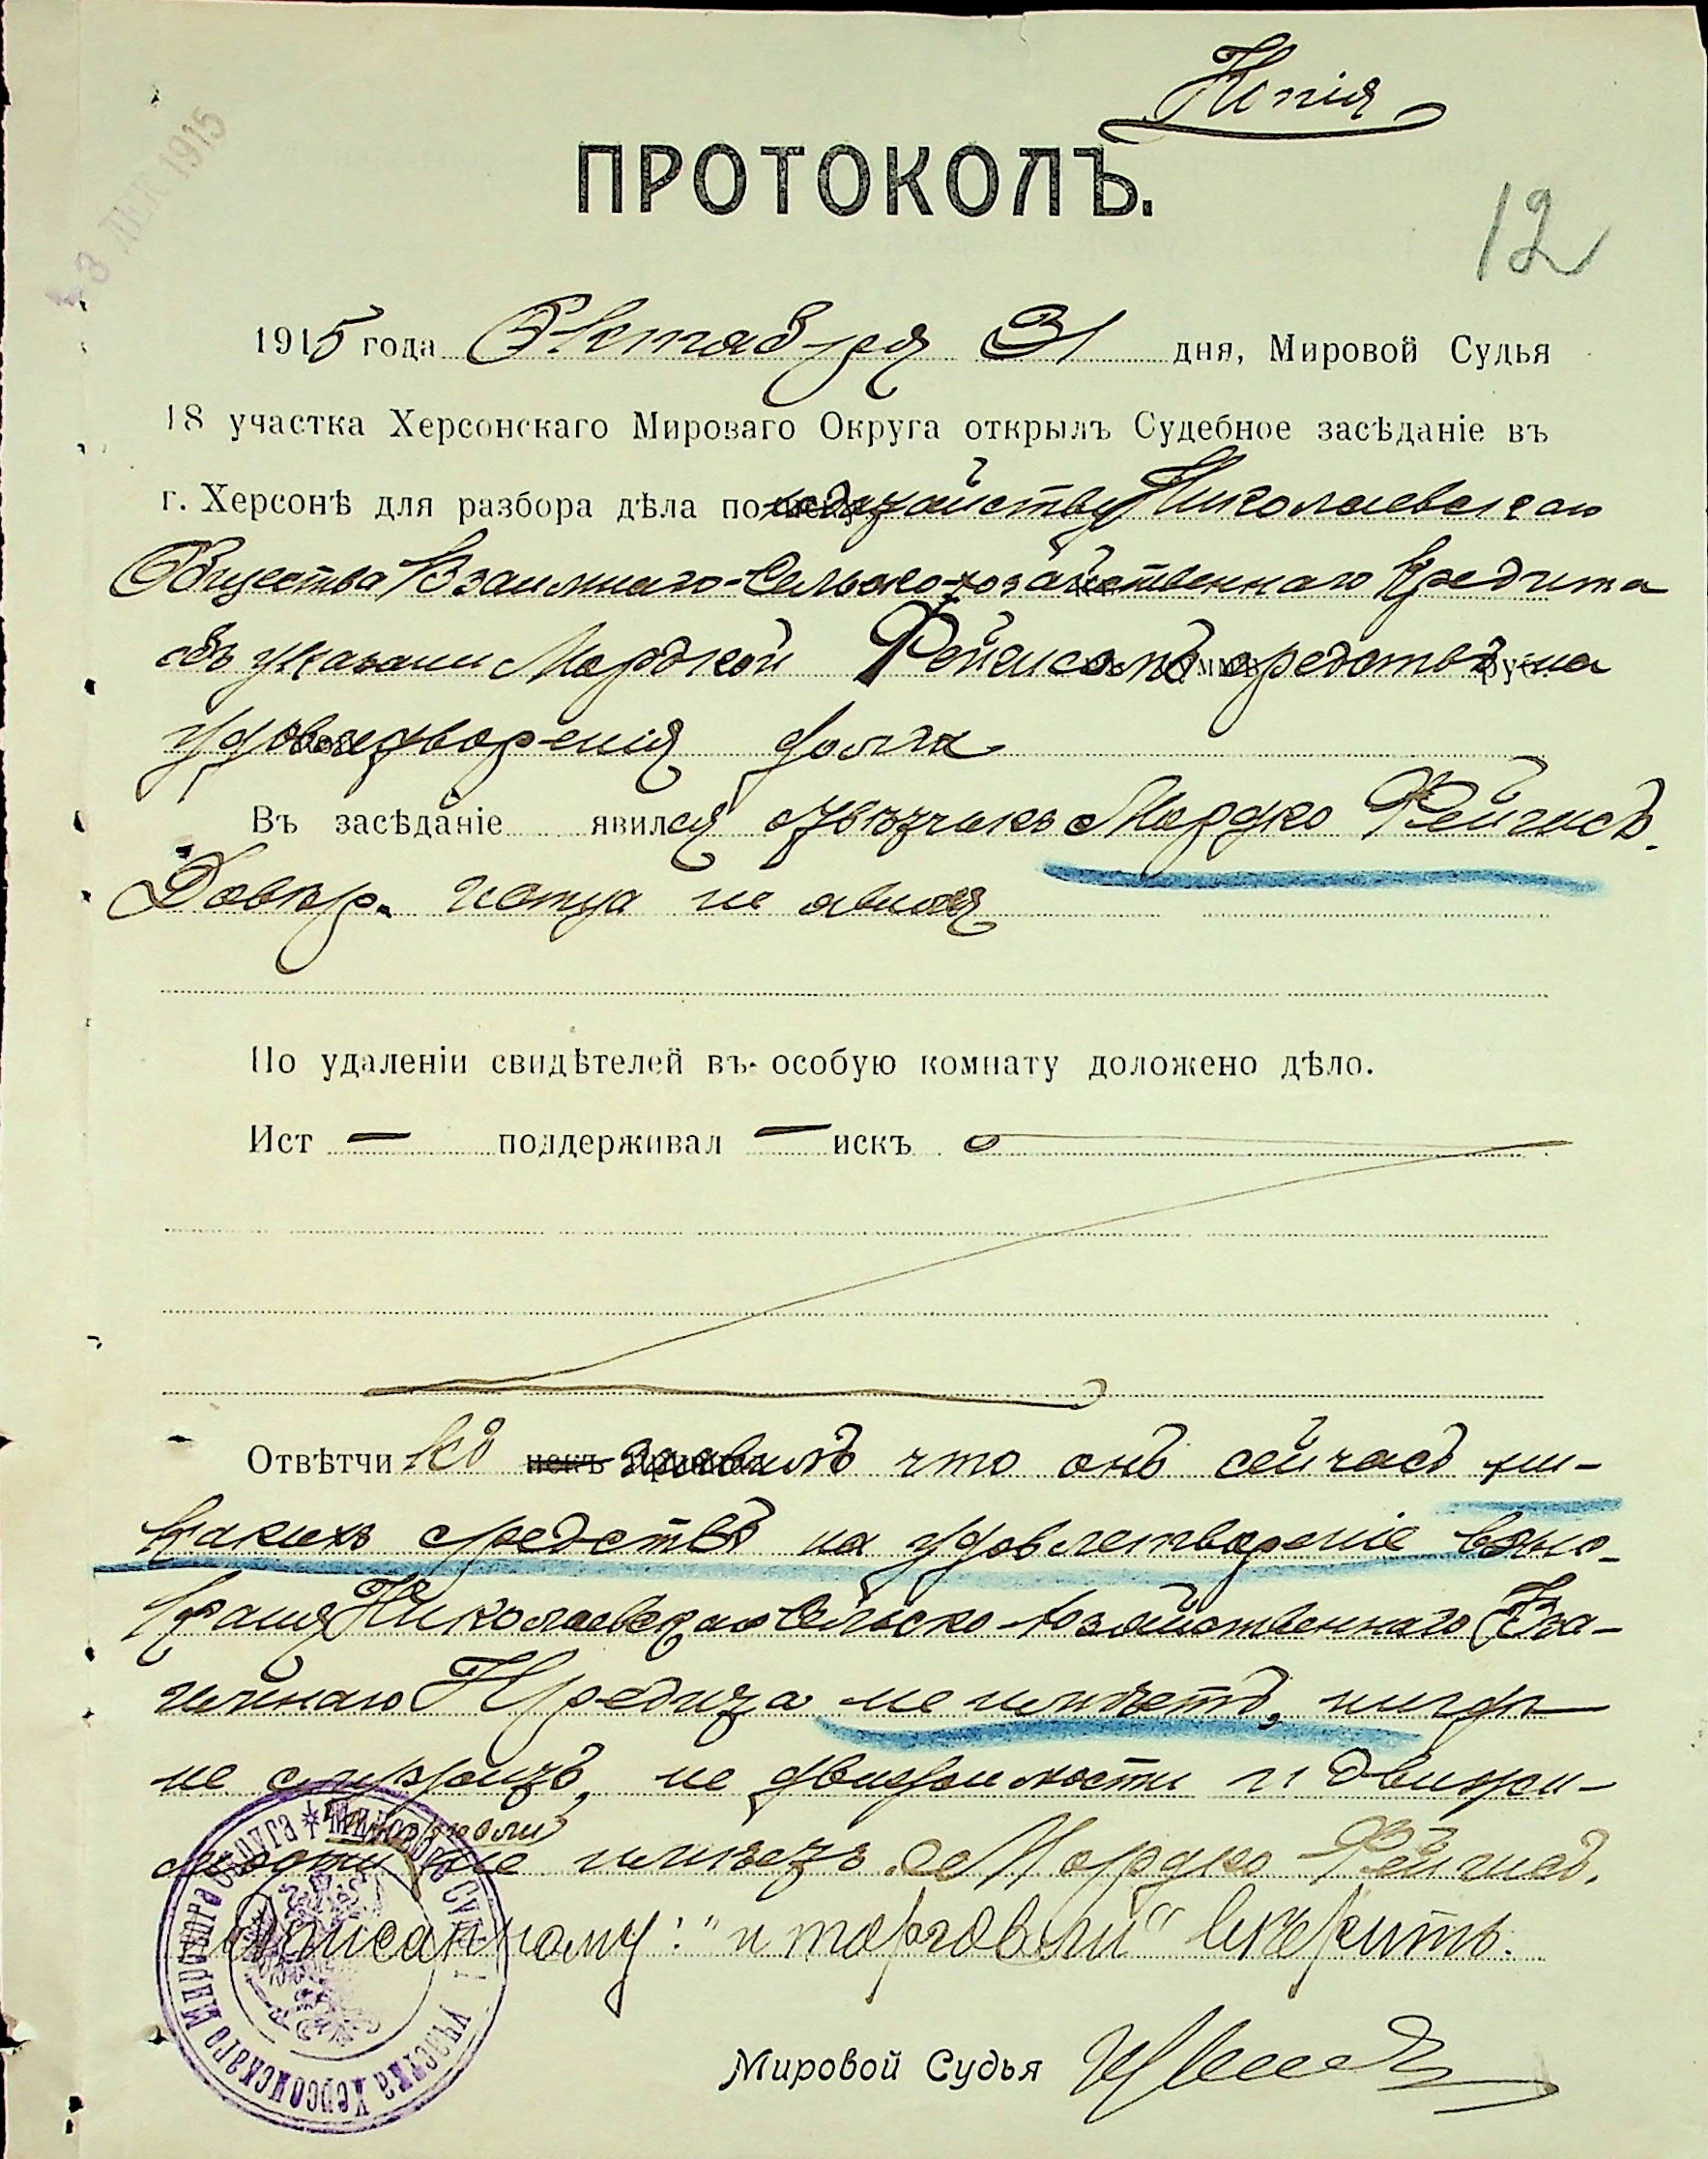 Копія
ПРОТОКОЛЪ.
3 ДЕК 1915
12
1915 года Октября 31 дня, Мировой Судья
18 участка Херсонскаго Мироваго Округа открылъ Судебное засѣданіе въ
г. Херсонѣ для разбора дѣла по ходатайству Николаевскаго
Общества Взаимнаго-Сельско-хозяйственнаго Кредита
объ указаніи Мордкой Фейгисомъ средствъ на
удовлетворенія долга
Въ засѣданіе явился отвѣтчикъ Мордко Фейгисъ.
Довѣр. истца не явился
По удаленіи свидѣтелей въ особую комнату доложено дѣло.
Ист — поддерживал — искъ
Отвѣтчикъ заявилъ что онъ сейчасъ ни-
какихъ средствъ на удовлетвореніе взыс-
канія Николаевскаго Сельско-хозяйственнаго Вза-
имнаго Кредита не имѣетъ, нигдѣ
не служитъ, не движимости и движи-
мости и торговли не имѣетъ. Мордко Фейгисъ.
Надписанному: "и торговли" вѣрить.
Мировой Судья
Мировой Судья участка Херсонскаго Мироваго Округа